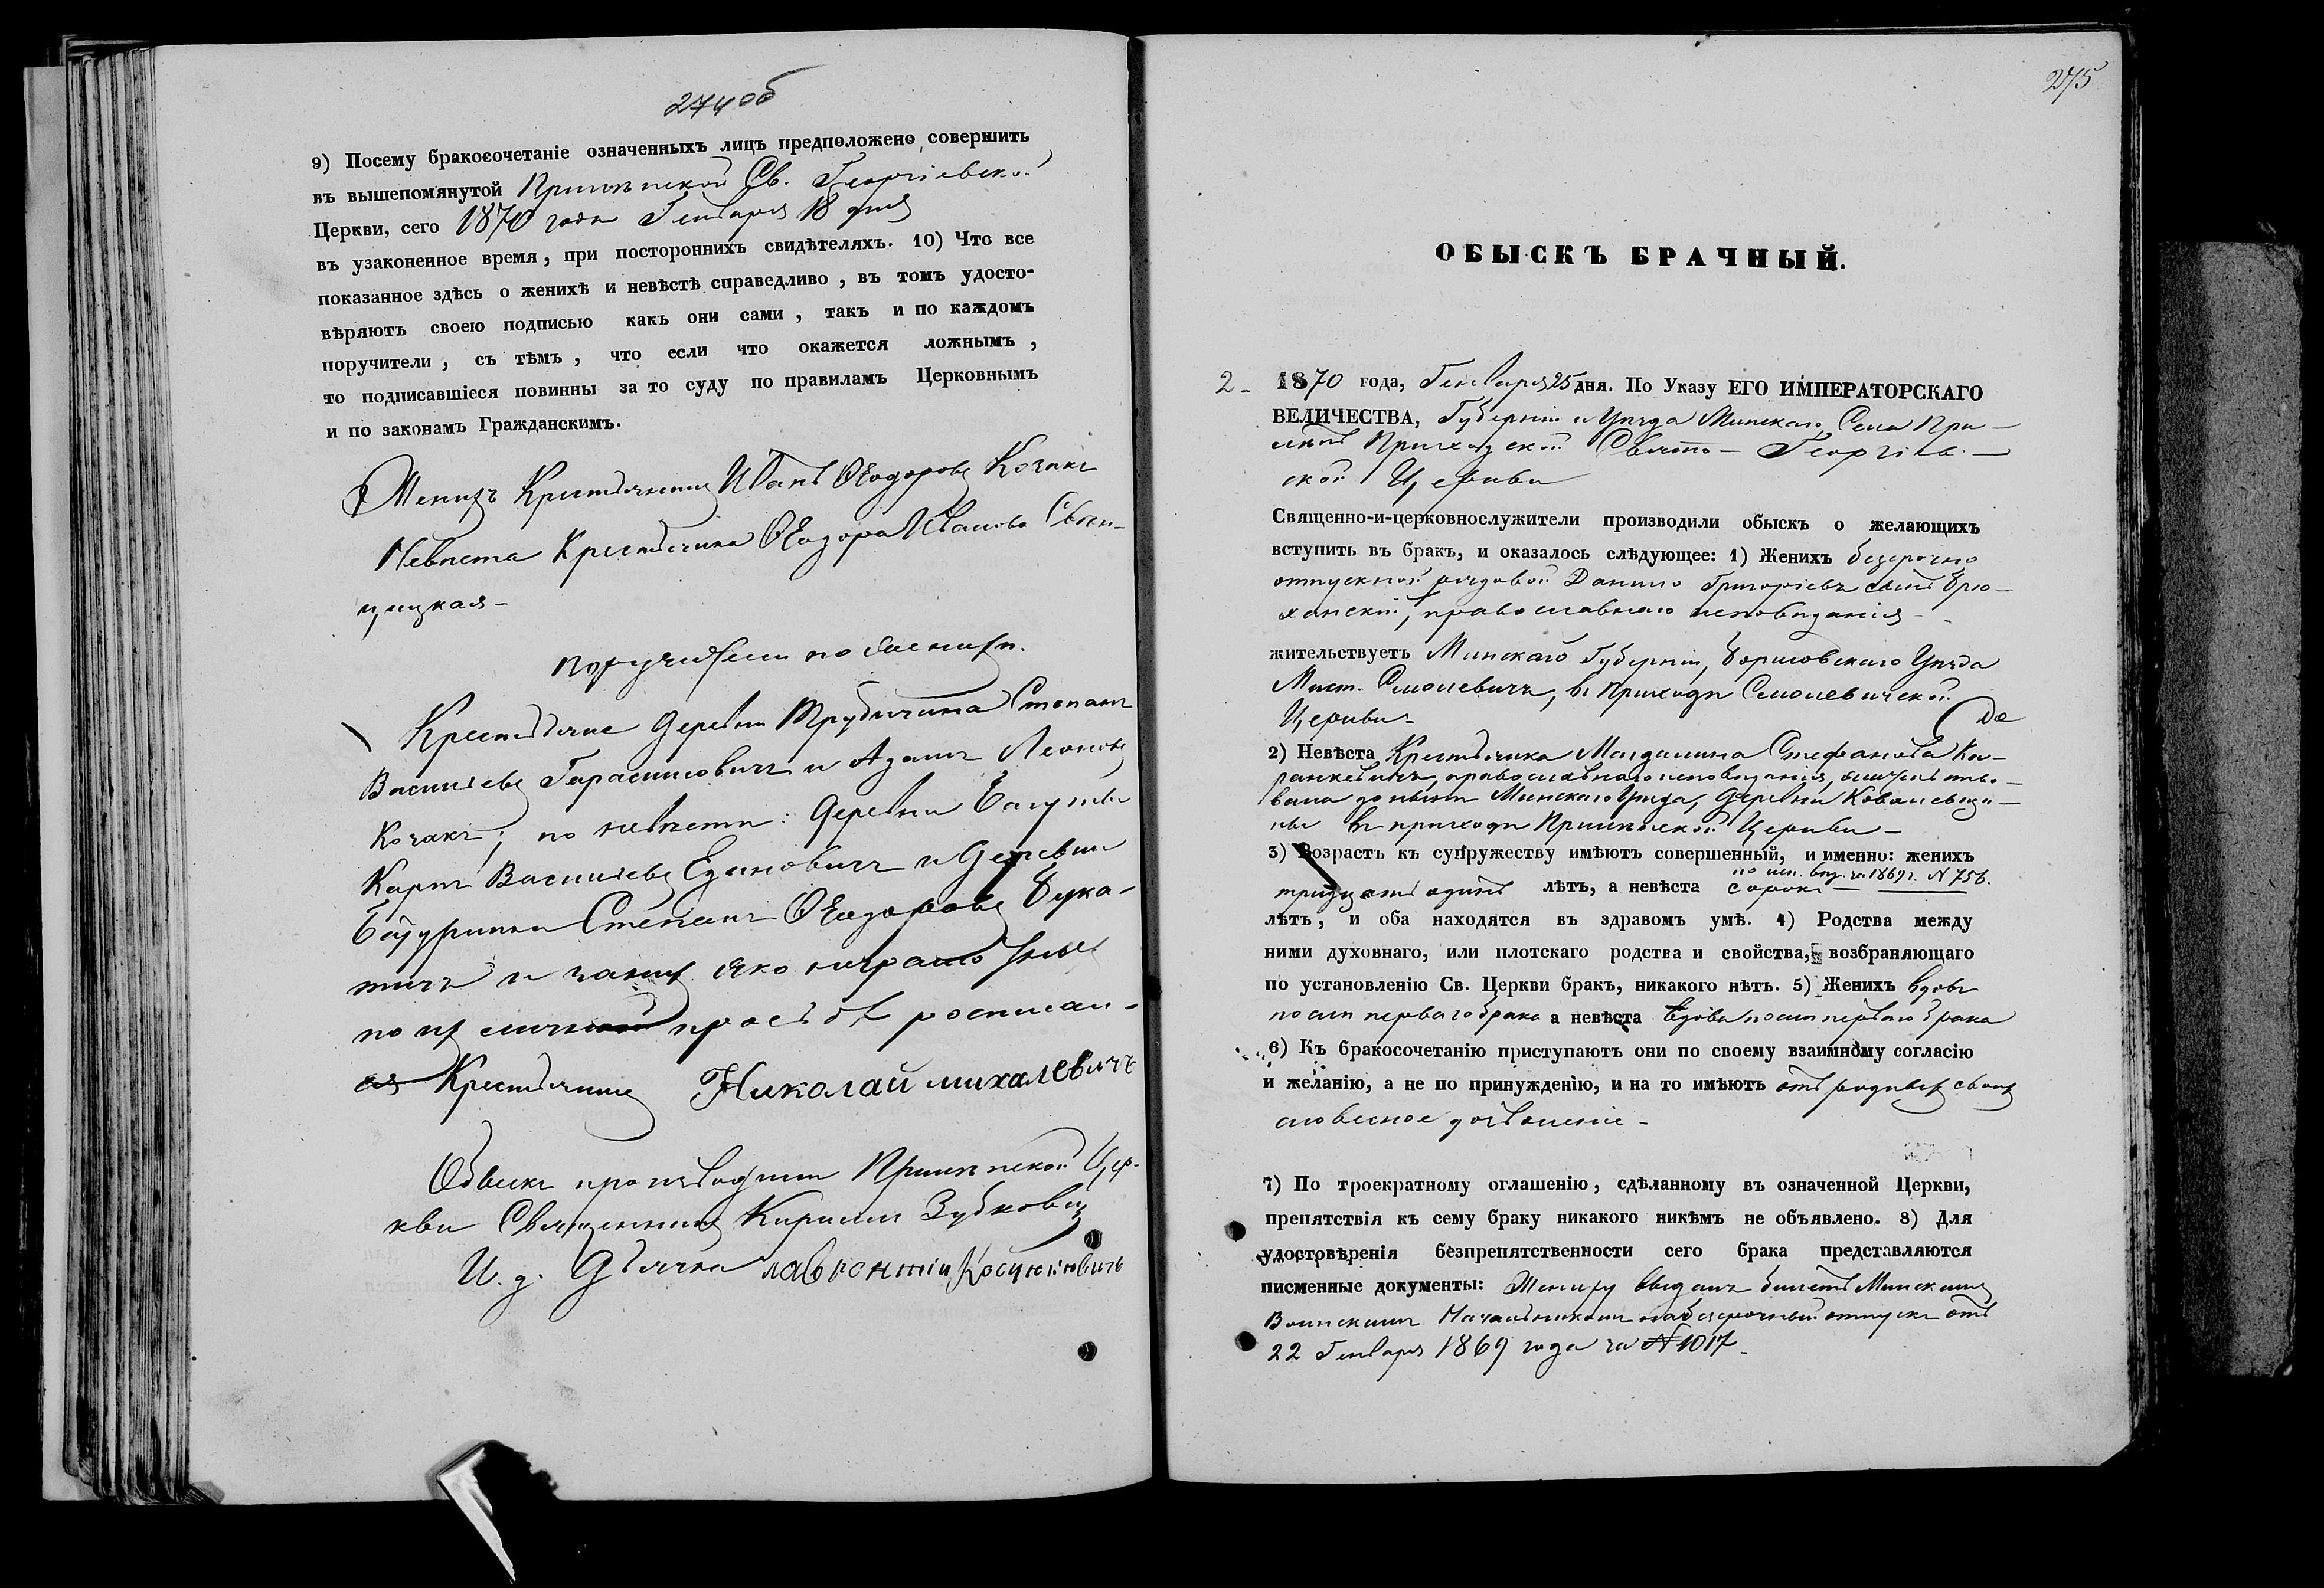 274об
9) Посему бракосочетаніе означенныхъ лицъ предположено совершить
въ вышепомянутой Прилѣпской Св. Георгіевской
Церкви, сего 1870 года Генваря 18 дня
въ узаконенное время, при постороннихъ свидѣтеляхъ. 10) Что все
показанное здѣсь о женихѣ и невѣстѣ справедливо, въ томъ удосто-
вѣряютъ своею подписью какъ они сами, такъ и по каждомъ
поручители, съ тѣмъ, что если что окажется ложнымъ,
то подписавшіеся повинны за то суду по правиламъ Церковнымъ
и по законамъ Гражданскимъ.
Женихъ Крестьянинъ Иванъ Ѳеодоровъ Кочанъ
Невѣста Крестьянка Ѳеодора Иванова
цицкая-
поручители по женихѣ.
Крестьяне деревни Трубичина Степанъ
Васильевъ Гарасимовичъ и Адамъ Леоновъ
Кочанъ; по невѣстѣ: деревни
Карпъ Васильевъ Едяновичъ и деревни
Степанъ Ѳеодоровъ Бука-
тичъ и за нихъ яко неграмотныхъ
по ихъ личной прозьбѣ росписал-
ся Крестьянинъ Николай михалевичъ
Обыскъ производили Прилѣпской Цер-
кви Священникъ Кириллъ Зубковичъ
И. д. Дьячка лаврентій
275
ОБЫСКЪ БРАЧНЫЙ.
2- 1870 года, Генваря 25 дня. По Указу ЕГО ИМПЕРАТОРСКАГО
ВЕЛИЧЕСТВА, Губерніи и Уѣзда Минскаго, Села При-
лѣпъ Приходской Свято-Георгіев-
ской Церкви
Священно-и-церковнослужители производили обыскъ о желающихъ
вступить въ бракъ, и оказалось слѣдующее: 1) Женихъ безсрочно
отпускной рядовой Данило Григорьевъ сынъ Брю-
ханскій, православнаго исповѣданія -
жительствуетъ Минской Губерніи, Борисовскаго Уѣзда
Мѣст. Смолевичъ, въ приходѣ Смолевичской
Церкви-
2) Невѣста Крестьянка Магдалина Стефанова Ка-
православнаго исповѣданія, жительство-
вала донынѣ Минскаго Уѣзда, деревни Ковалевщи-
ны въ приходѣ Прилѣпской Церкви -
3) Возрастъ къ супружеству имѣютъ совершенный, и именно: женихъ
по исп. вѣд. за 1869 г. N 756.
тридцать одинъ лѣтъ, а невѣста сорокъ -
лѣтъ, и оба находятся въ здравомъ умѣ. 4) Родства между
ними духовнаго, или плотскаго родства и свойства, возбраняющаго
по установленію Св. Церкви бракъ, никакого нѣтъ. 5) Женихъ вдовъ
послѣ перваго брака а невѣста вдова послѣ перваго брака
6) Къ бракосочетанію приступаютъ они по своему взаимному согласію
и желанію, а не по принужденію, и на то имѣютъ отъ родныхъ своихъ
словесное дозволеніе -
7) По троекратному оглашенію, сдѣланному въ означенной Церкви,
препятствія къ сему браку никакого никѣмъ не объявлено. 8) Для
удостовѣренія безпрепятственности сего брака представляются
писменные документы: Жениху выданъ билетъ Минскимъ
Воинскимъ Начальникомъ на безсрочный отпускъ отъ
22 Генваря 1869 года за N 1017-